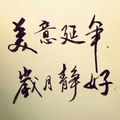 美意延年
歲月靜好